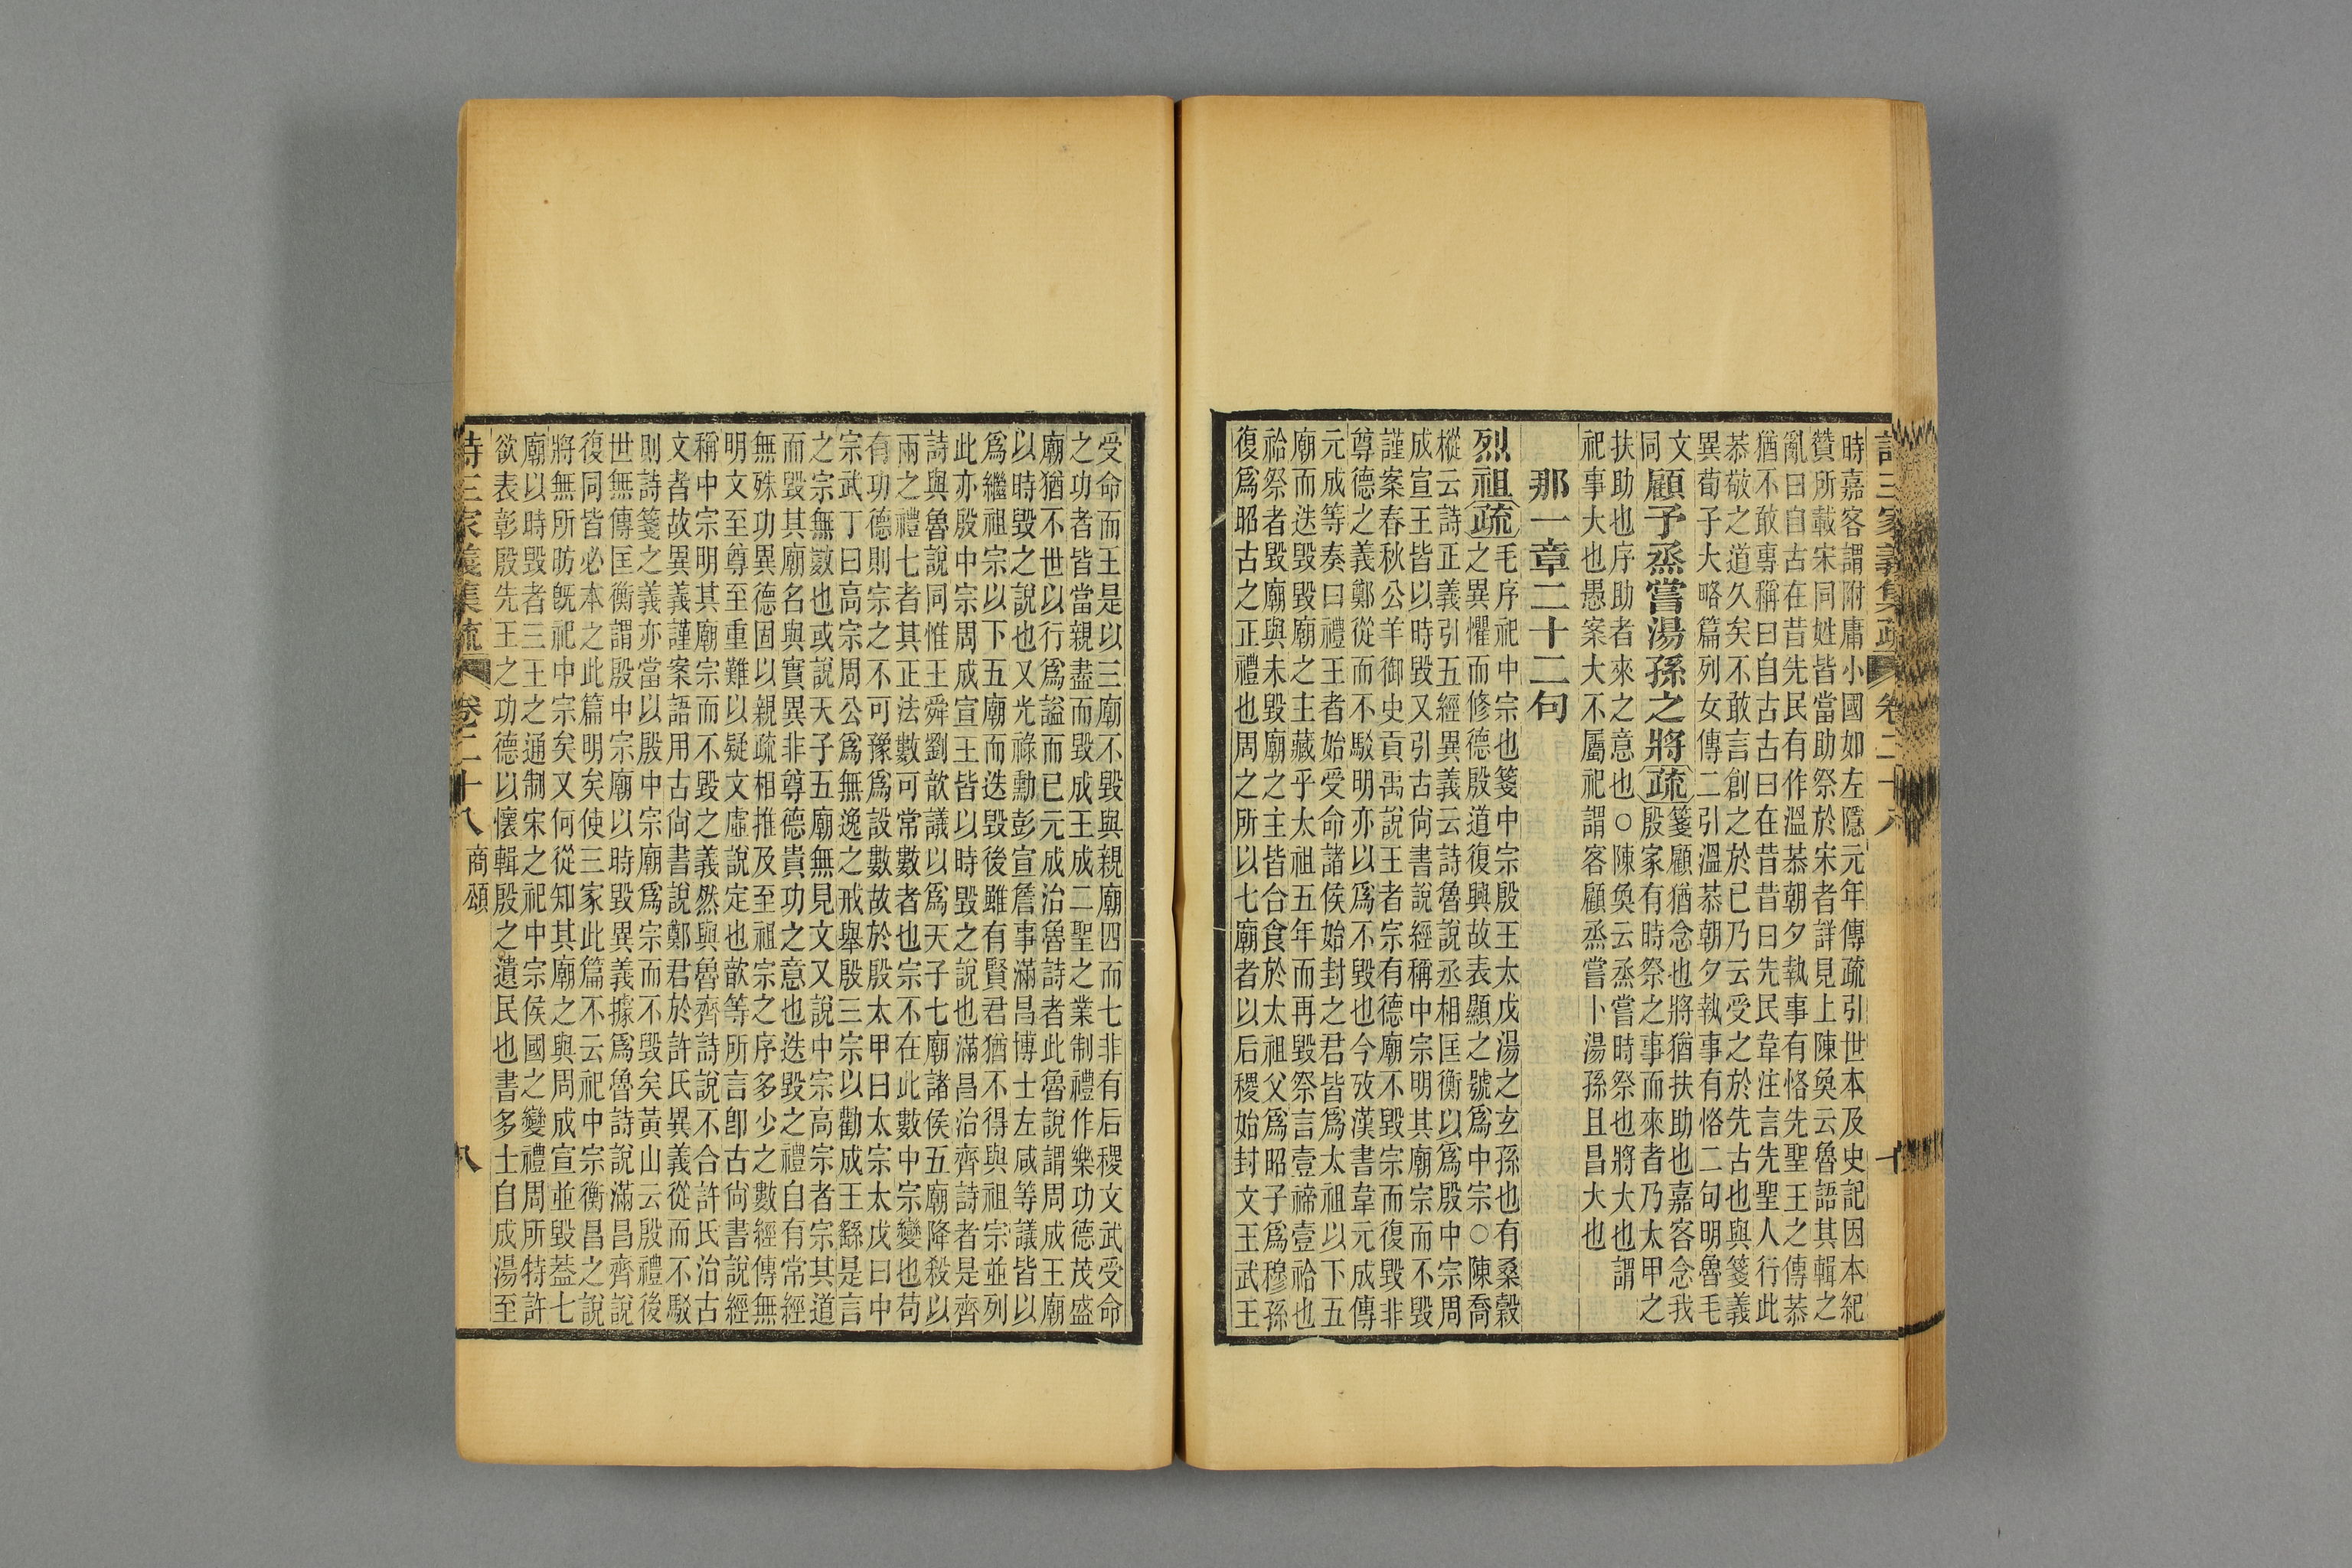 時嘉客謂附庸小國如左隱元年傳疏引世本及史記因本紀
贊所載宋同姓皆當助祭於宋者詳見上陳奐云魯語其輯之
亂曰自古在昔先民有作溫恭朝夕執事有恪先聖王之傳恭
猶不敢專稱曰自古古曰在昔昔曰先民韋注言先聖人行此
恭敬之道久矣不敢言創之於已乃云受之於先古也與箋義
異荀子大略篇列女傳二引溫恭朝夕執事有恪二句明魯毛
文同
顧予烝嘗湯孫之將疏
箋顧猶念也將猶扶助也嘉客念我
殷家有時祭之事而來者乃太甲之
扶助也序助者來之意也○陳奐云烝嘗時祭也將大也謂
祀事大也愚案大不屬祀謂客顧烝嘗卜湯孫且昌大也
那一章二十二句
烈祖疏
毛序祀中宗也箋中宗殷王太戊湯之玄孫也有桑穀
之異懼而修德殷道復興故表顯之號爲中宗○陳喬
樅云詩正義引五經異義云詩魯說丞相匡衡以爲殷中宗周
成宣王皆以時毀又引古尙書說經稱中宗明其廟宗而不毀
謹案春秋公羊御史貢禹說王者宗有德廟不毀宗而復毀非
尊德之義鄭從而不駁明亦以爲不毀也今攷漢書韋元成傳
元成等奏曰禮王者始受命諸侯始封之君皆爲太祖以下五
廟而迭毀毀廟之主藏乎太祖五年而再毀祭言壹禘壹祫也
祫祭者毀廟與未毀廟之主皆合食於太祖父爲昭子爲穆孫
復爲昭古之正禮也周之所以七廟者以后稷始封文王武王
詩三家義集疏 卷二十八
受命而王是以三廟不毀與親廟四而七非有后稷文武受命
之功者皆當親盡而毀成王成二聖之業制禮作樂功德茂盛
廟猶不世以行爲謚而已元成治魯詩者此魯說謂周成王廟
以時毀之說也又光祿勳彭宣詹事滿昌博士左咸等議皆以
爲繼祖宗以下五廟而迭毀後雖有賢君猶不得與祖宗並列
此亦殷中宗周成宣王皆以時毀之說也滿昌治齊詩者是齊
詩與魯說同惟王舜劉歆議以爲天子七廟諸侯五廟降殺以
兩之禮七者其正法數可常數者也宗不在此數中宗變也苟
有功德則宗之不可豫爲設數故於殷太甲曰太宗太戊曰中
宗武丁曰高宗周公爲無逸之戒舉殷三宗以勸成王繇是言
之宗無數也或說天子五廟無見文又說中宗高宗者宗其道
而毀其廟名與實異非尊德貴功之意也迭毀之禮自有常經
無殊功異德固以親疏相推及至祖宗之序多少之數經傳無
明文至尊至重難以疑文虛說定也歆等所言卽古尙書說經
稱中宗明其廟宗而不毀之義然與魯齊詩說不合許氏治古
文者故異義謹案語用古尙書說鄭君於許氏異義從而不駁
則詩箋之義亦當以殷中宗廟爲宗而不毀矣黃山云殷禮後
世無傳匡衡謂殷中宗廟以時毀異義據爲魯詩說滿昌齊說
復同皆必本之此篇明矣使三家此篇不云祀中宗衡昌之說
將無所昉旣祀中宗矣又何從知其廟之與周成宣並毀葢七
廟以時毀者三王之通制宋之祀中宗侯國之變禮周所特許
欲表彰殷先王之功德以懷輯殷之遺民也書多士自成湯至
詩三家義集疏 卷二十八 商頌 八